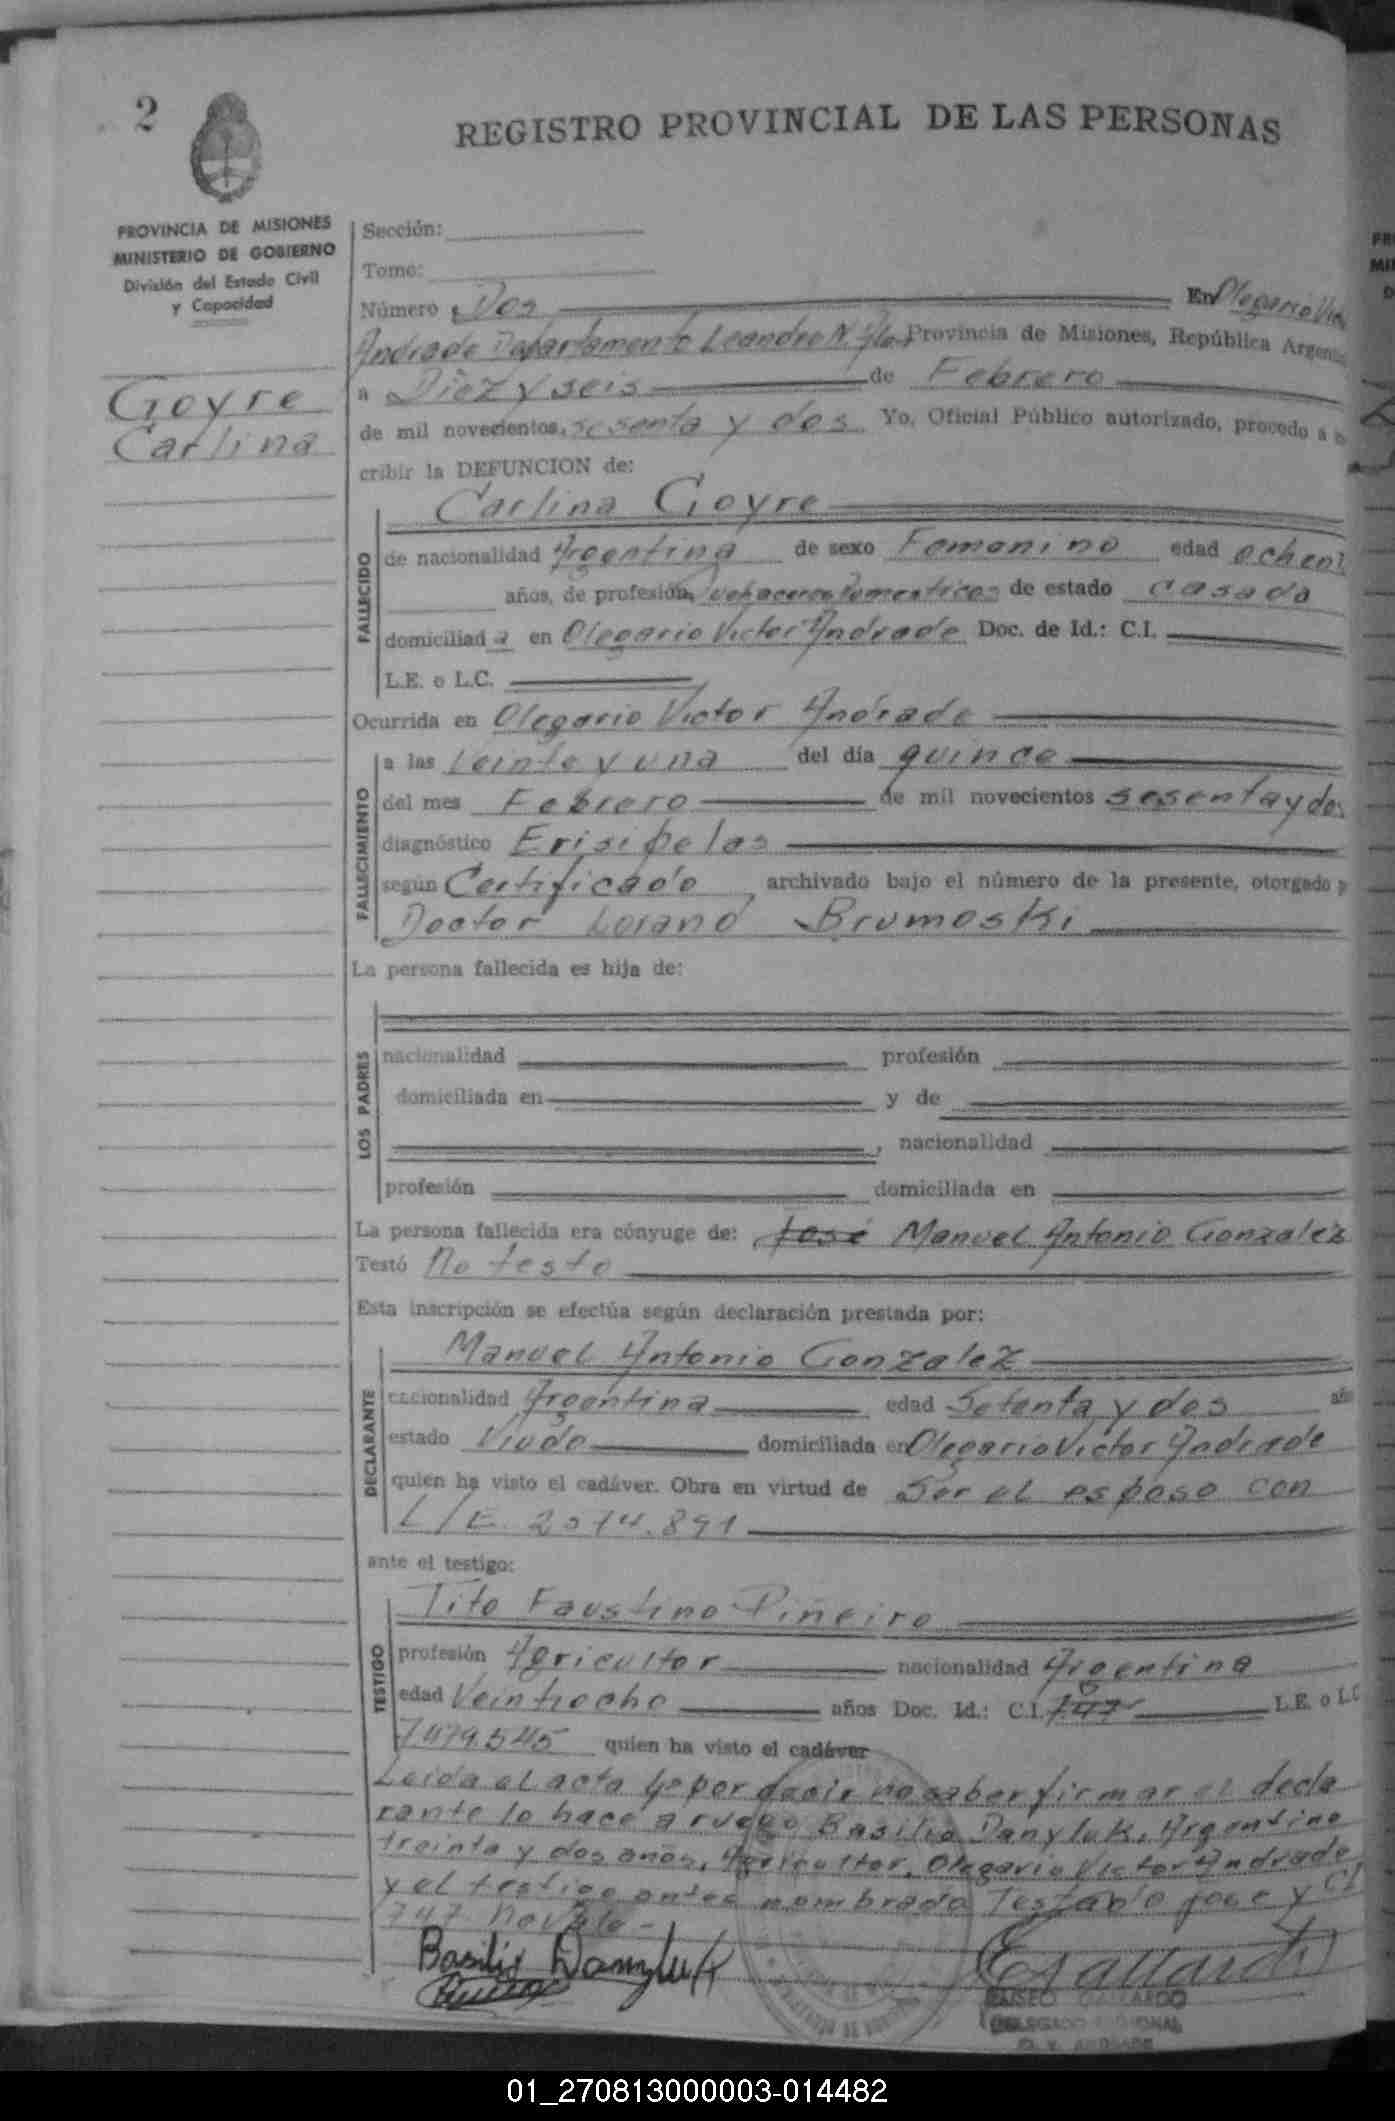 2
REGISTRO PROVINCIAL DE LAS PERSONAS
PROVINCIA DE MISIONES
MINISTERIO DE GOBIERNO
División del Estado Civil
y Capacidad
Goyre
Carlina
Sección:
Tomo:
Número Dos En Olegario Vic
Andrade Departamento Leandro N. Provincia de Misiones, República Argenti
a Diez y seis de Febrero
de mil novecientos, sesenta y dos Yo, Oficial Público autorizado, procedo a
cribir la DEFUNCION de:
Carlina Goyre
FALLECIDO
de nacionalidad Argentina de sexo Femenino edad ochent
años, de profesión de estado casada
domiciliad a en Olegario Victor Andrade Doc. de Id.: C.I.
L.E. o L.C.
Ocurrida en Olegario Victor Andrade
FALLECIMIENTO
a las Veinte y una del día quince
del mes Febrero de mil novecientos sesenta y dos
diagnóstico Erisipelas
según Certificado, archivado bajo el número de la presente, otorgado p
Doctor Brumoski
La persona fallecida es hija de:
LOS PADRES
nacionalidad profesión
domiciliada en y de
, nacionalidad
profesión domiciliada en
La persona fallecida era cónyuge de: José Manuel Antonio Gonzalez
Testó No testo
Esta inscripción se efectúa según declaración prestada por:
DECLARANTE
Manuel Antonio Gonzalez
nacionalidad Argentina edad Setenta y dos año
estado Viudo domiciliada en Olegario Victor Andrade
quien ha visto el cadáver. Obra en virtud de Ser el esposo con
L/E. 2074.891
ante el testigo:
TESTIGO
Tito Faustino Piñeiro
profesión Agricultor nacionalidad Argentina
edad Veintiocho años Doc. Id.: C.I. 747 L.E. o L.C
7479.545 quien ha visto el cadáver
Leida el acta y por decir no saber firmar el decla
rante lo hace a ruego Basilio Danyluk, Argentino
treinta y dos años, Agricultor, Olegario Victor Andrade
y el testigo antes nombrado Testado jose y CI
747 No Vale-
Basilio Danyluk
ELISEO GALLARDO
DELEGADO REGIONAL
O. V. ANDRADE
01_270813000003-014482